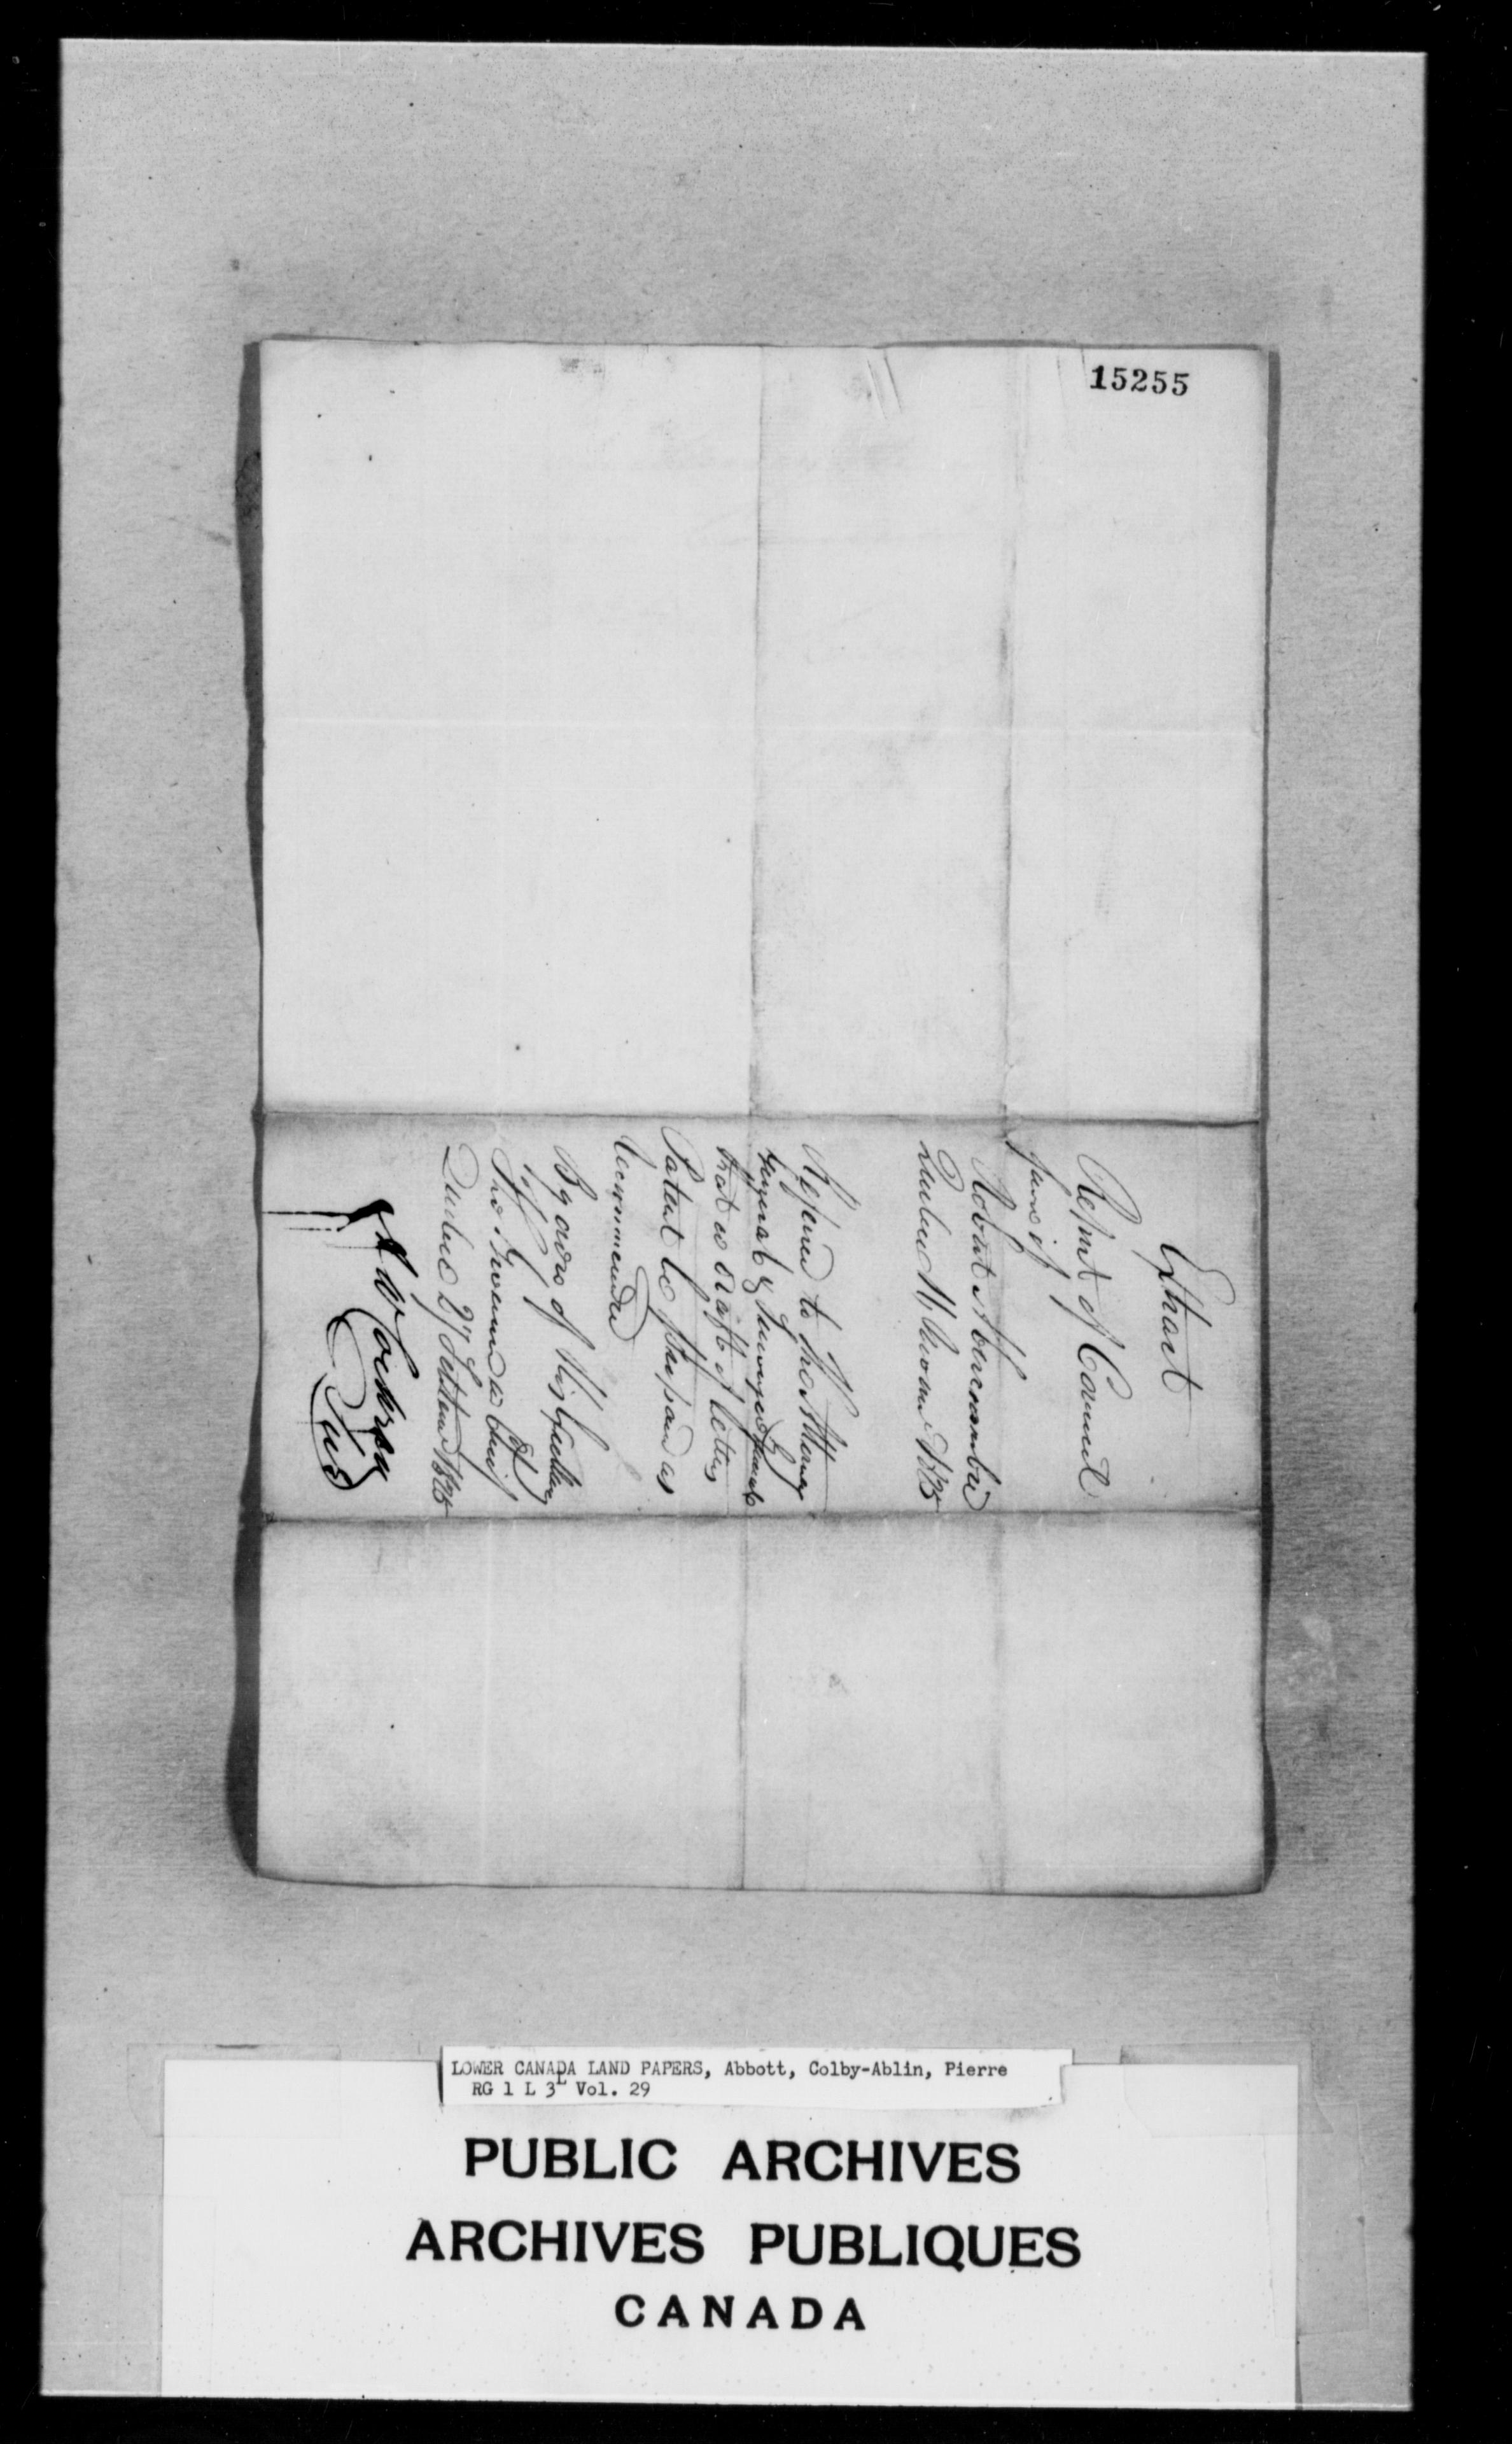 15255
Extract
Report of Council
favor of
Robert Abercrombie
Quebec
Referred to the Attorney
General &
that a draft of letters
Patent be prepared as
recommended
By order of His Excellency
The Governor in Chief
Quebec
A W Cochran
Secy
LOWER CANADA LAND PAPERS, Abbott, Colby-Ablin, Pierre
RG 1 L 3L Vol. 29
PUBLIC ARCHIVES
ARCHIVES PUBLIQUES
CANADA